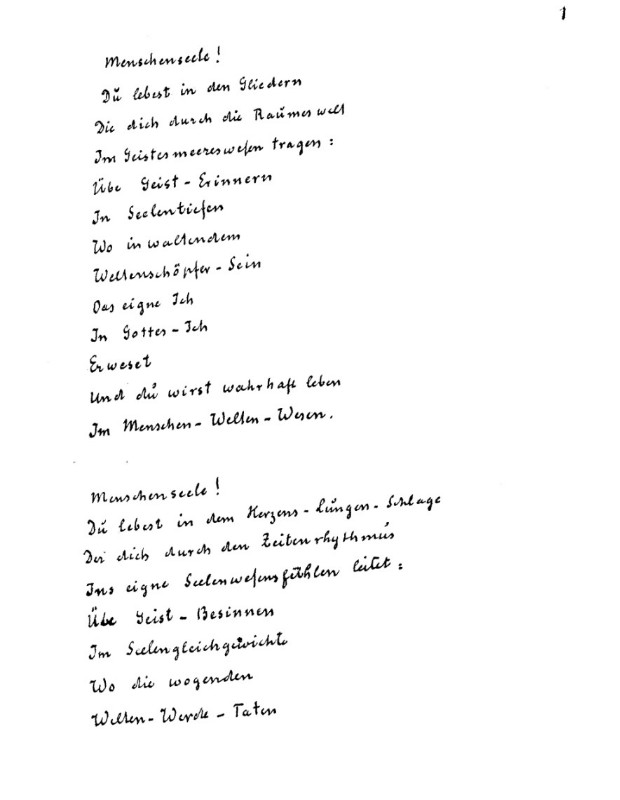 1
Menschenseele!
Du lebest in den Gliedern
Die dich durch die Raumeswelt
Im Geistesmeereswesen tragen:
Übe Geist-Erinnern
In Seelentiefen
Wo in waltendem
Weltenschöpfer-Sein
Das eigne Ich
In Gottes-Ich
Erweset
Und du wirst wahrhaft leben
Im Menschen-Welten-Wesen.
Menschenseele!
Du lebest in dem Herzens-Lungen-Schlage
Der dich durch den Zeitenrhythmus
Ins eigne Seelenwesensfühlen leitet:
Übe Geist-Besinnen
Im Seelengleichgewichte
Wo die wogenden
Welten-Werde-Taten